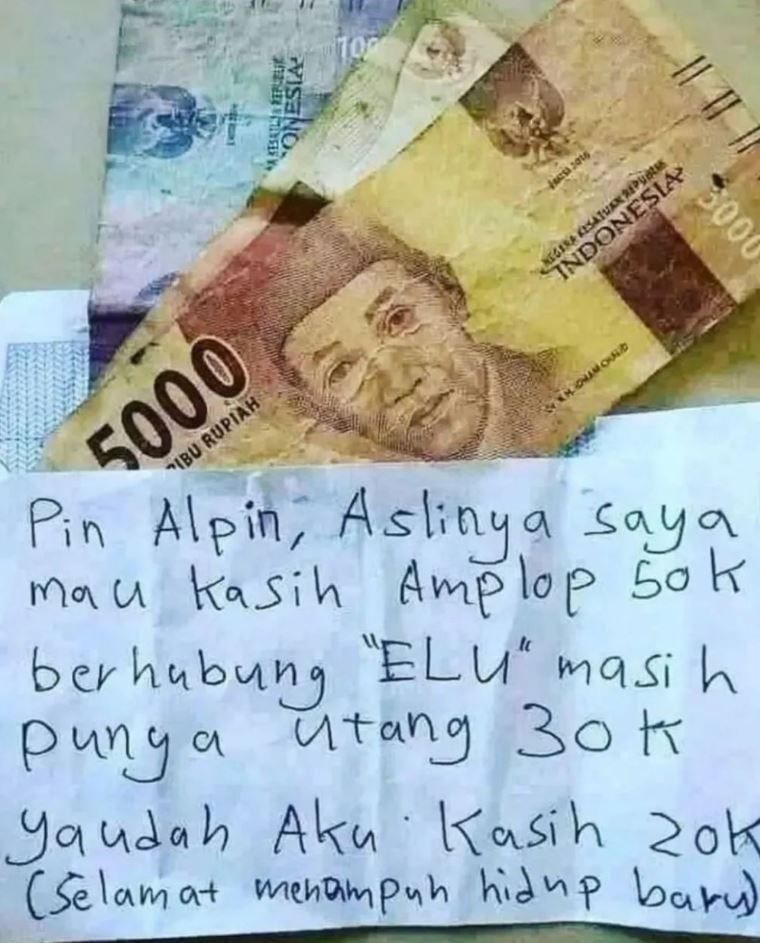 100
NEGARA KESATUAN REPUBLIK
INDONESIA
EMISI 2016
5000
5000
RIBU RUPIAH
Dr. K.H. IDHAM CHALID
Pin Alpin, Aslinya saya
mau kasih Amplop 50k
berhubung "ELU" masih
punya utang 30k
yaudah Aku Kasih 20k
(Selamat menampuh hidup baru)